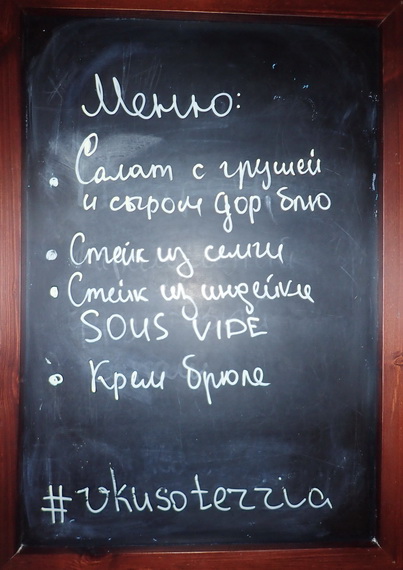 Меню:
• Салат с грушей
и сыром дор блю
• Стейк из семги
• Стейк из индейки
SOUS VIDE
• Крем брюле
#vkusoterria